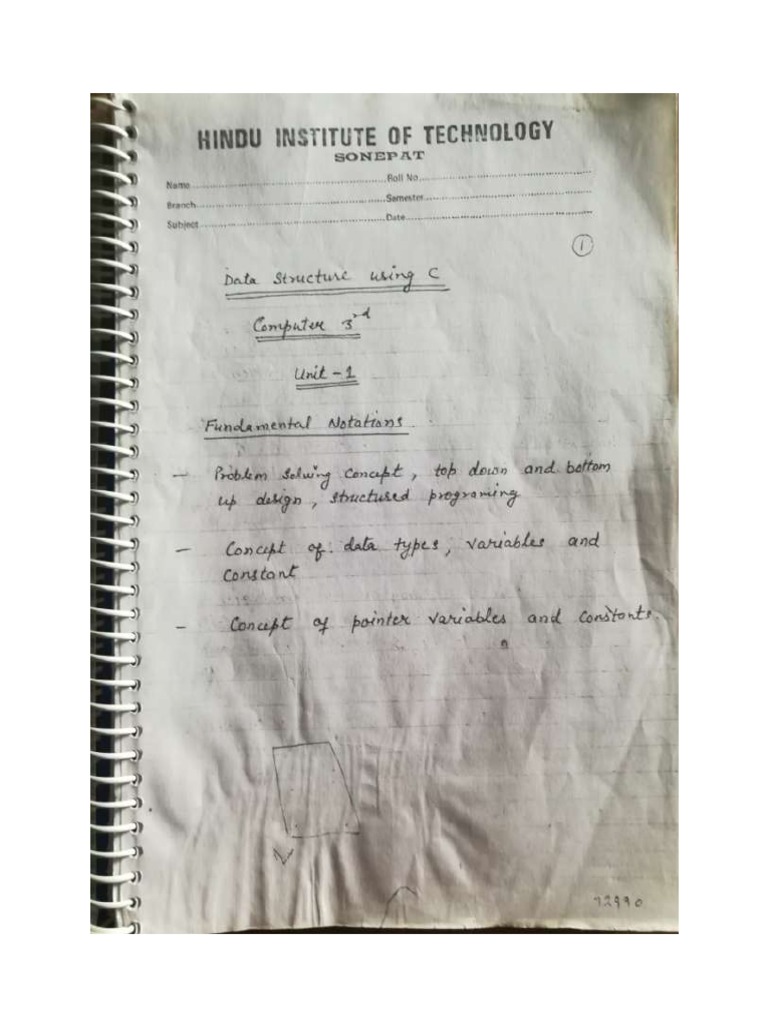 HINDU INSTITUTE OF TECHNOLOGY
SONEPAT
Name Roll No.
Branch Semester
Subject Date
1
Data Structure using C
Computer 3rd
Unit - 1
Fundamental Notations
- Problem solving concept, top down and bottom
up design, structured programing
- Concept of data types, variables and
constant
- Concept of pointer variables and constants.